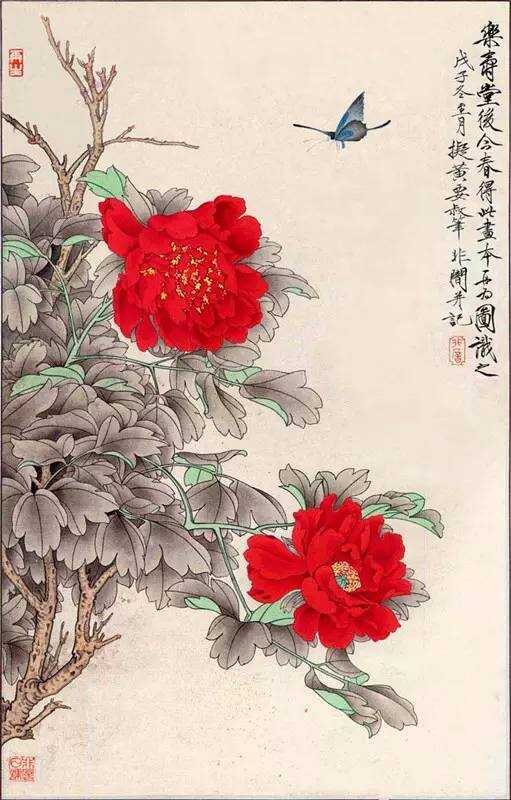 樂壽堂後今春得此畫本再为圖識之
戊子冬十一月擬黃要叔筆非闇并記